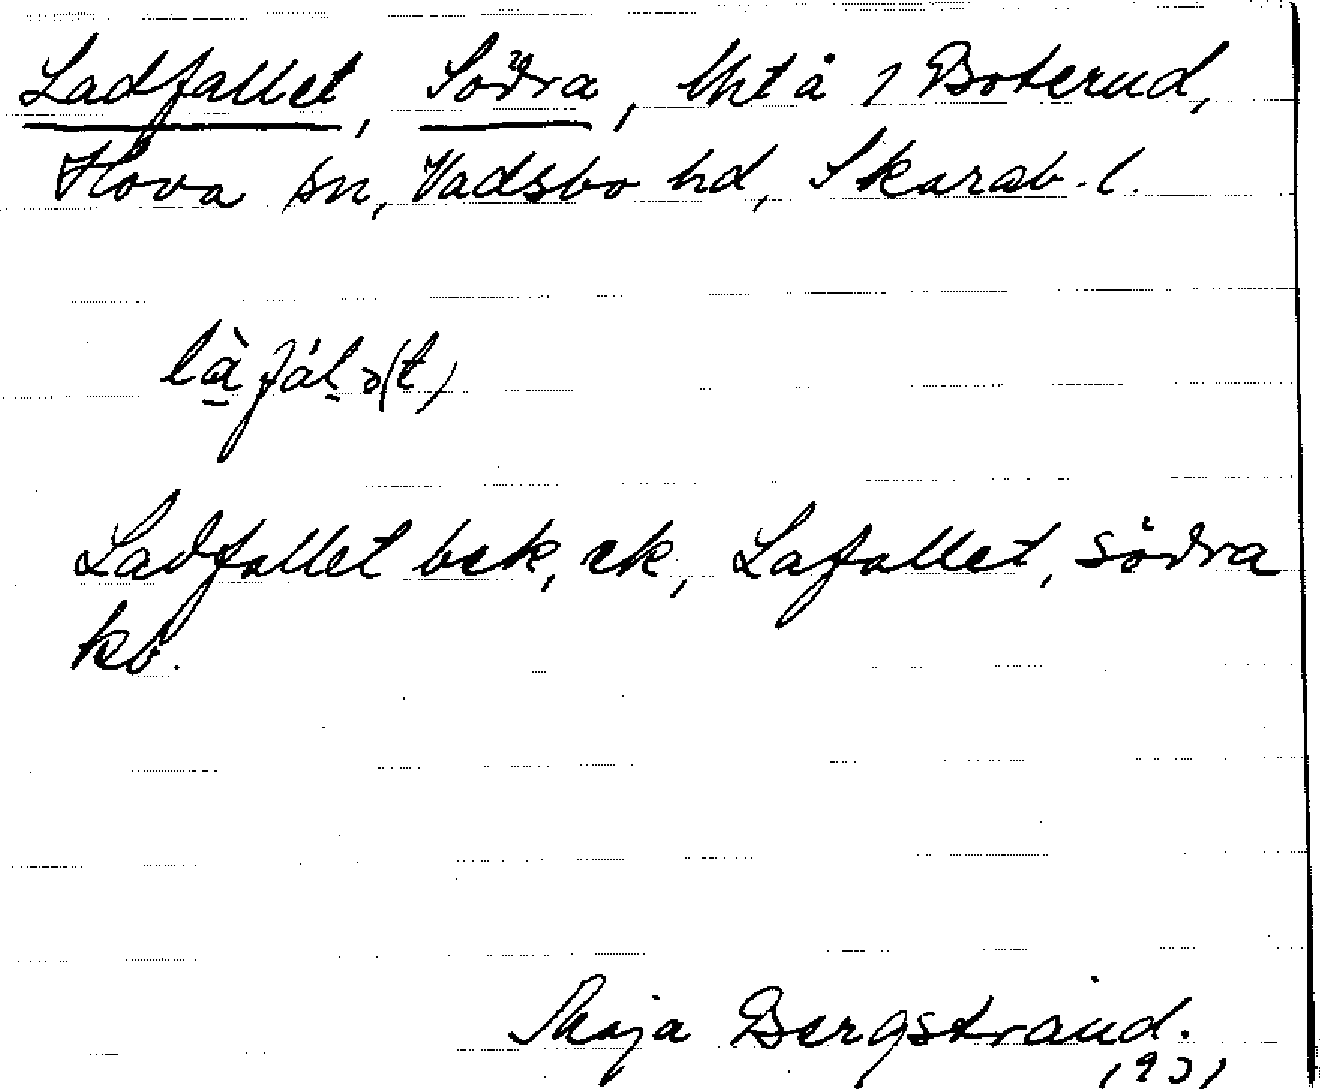 Ladfallet, Södra, lht å 1 Boterud,
Hova sn, Vadsbo hd, Skarab. l.
là̱fáḻə(t)
Ladfallet bek, ek, Lafallet, södra
kb.
Maja Bergstrand.
1931